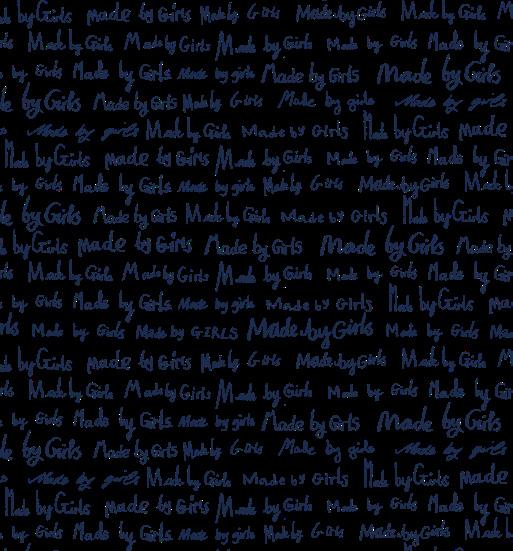 by Girls made by Girls Made by Girls Made by Girls Made by Girls
Made by Girls Made by Girls Made by Girls Made by Girls Made by
by Girls Made by Girls Made by girls Made by Girls Made by Girls
by Girls Made by Girls Made by Girls Make by girls Made by girls
Made by girls Made by Girls Made by Girls Made by Girls made
Made by Girls made by Girls Made by Girls Made by Girls Made by
by Girls Made by Girls Made by girls Made by Girls Made by Girls Made
by Girls Made by Girls Made by Girls Made by Girls Made by Girls
by Girls made by Girls Made by Girls Made by Girls Made by
Made by Girls Made by Girls Made by Girls Made by Girls Made by
by Girls Made by Girls Made by girls Made by Girls Made by Girls
Made by Girls Made by GIRLS Made by Girls Made by Girls Made
by Girls made by Girls Made by Girls Made by Girls Made by Girls
Made by Girls Made by Girls Made by Girls Made by Girls Made by
by Girls Made by Girls Made by girls Made by Girls Made by Girls
by Girls Made by Girls Made by Girls Made by girls Made by girls
Made by girls Made by Girls Made by Girls Made by Girls made
Made by Girls made by Girls Made by Girls Made by Girls Made by
by Girls Made by Girls Made by girls Made by Girls Made by Girls Made